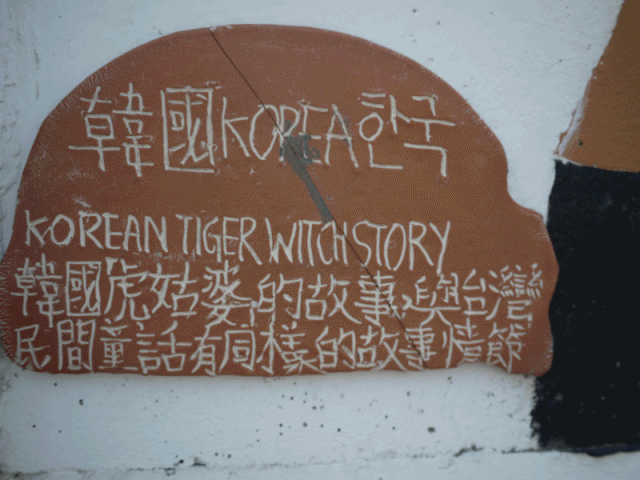 韓國KOREA한국
KOREAN TIGER WITCH STORY
韓國虎姑婆的故事與台灣
民間童話有同樣的故事情節